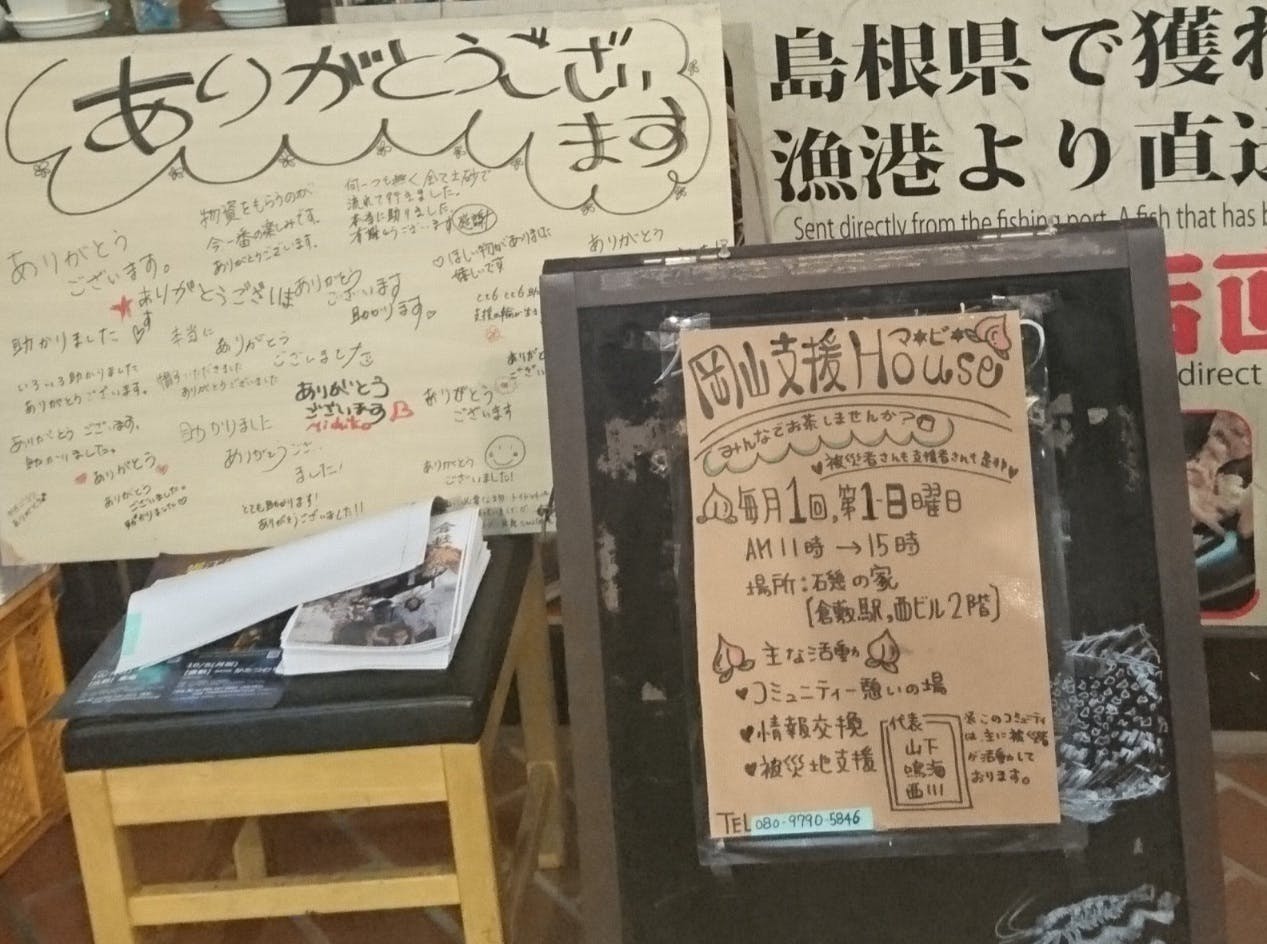 ありがとうござい
ます
物資をもらうのが
今一番の楽しみです。
ありがとうございます。
何一つも無く全て土砂で
流れて行きました。
本当に助りました。
有難うございます 感謝
ありがとう
ございます。
♡ほしい物がありまに
嬉しいです
ありがとう
★ありがとうございま
す
ありがとう
ございます
助かります♡
助かりました
本当に
ありがとう
ございました
いろいろ助かりました
ありがとうございます。
ありがとうございました
ありがとう
ございます
ありがとう
ございます
ありがとうございます。
助かりました。
助かりました
ありがとうござ
ました!
♥ありがとう
ありがとう
ございました。
助かりました♡
ありがとう
ございました!
とても助かります!
ありがとうございました!!
島根県で獲れ
漁港より直送
Sent directly from the fishing port. A fish that has b
direct
岡山支援House
マ*ビ*
みんなでお茶しませんか?
♥被災者さんも支援者さんも是非♥
毎月1回,第1日曜日
AM11時→15時
場所:磯の家
[倉敷駅,西ビル2階]
主な活動
♥コミュニティー憩いの場
♥情報交換
♥被災地支援
代表
山下
鳴海
西川
※このコミュニティ
は主に被災者
が活動して
おります。
TEL 080-9790-5846